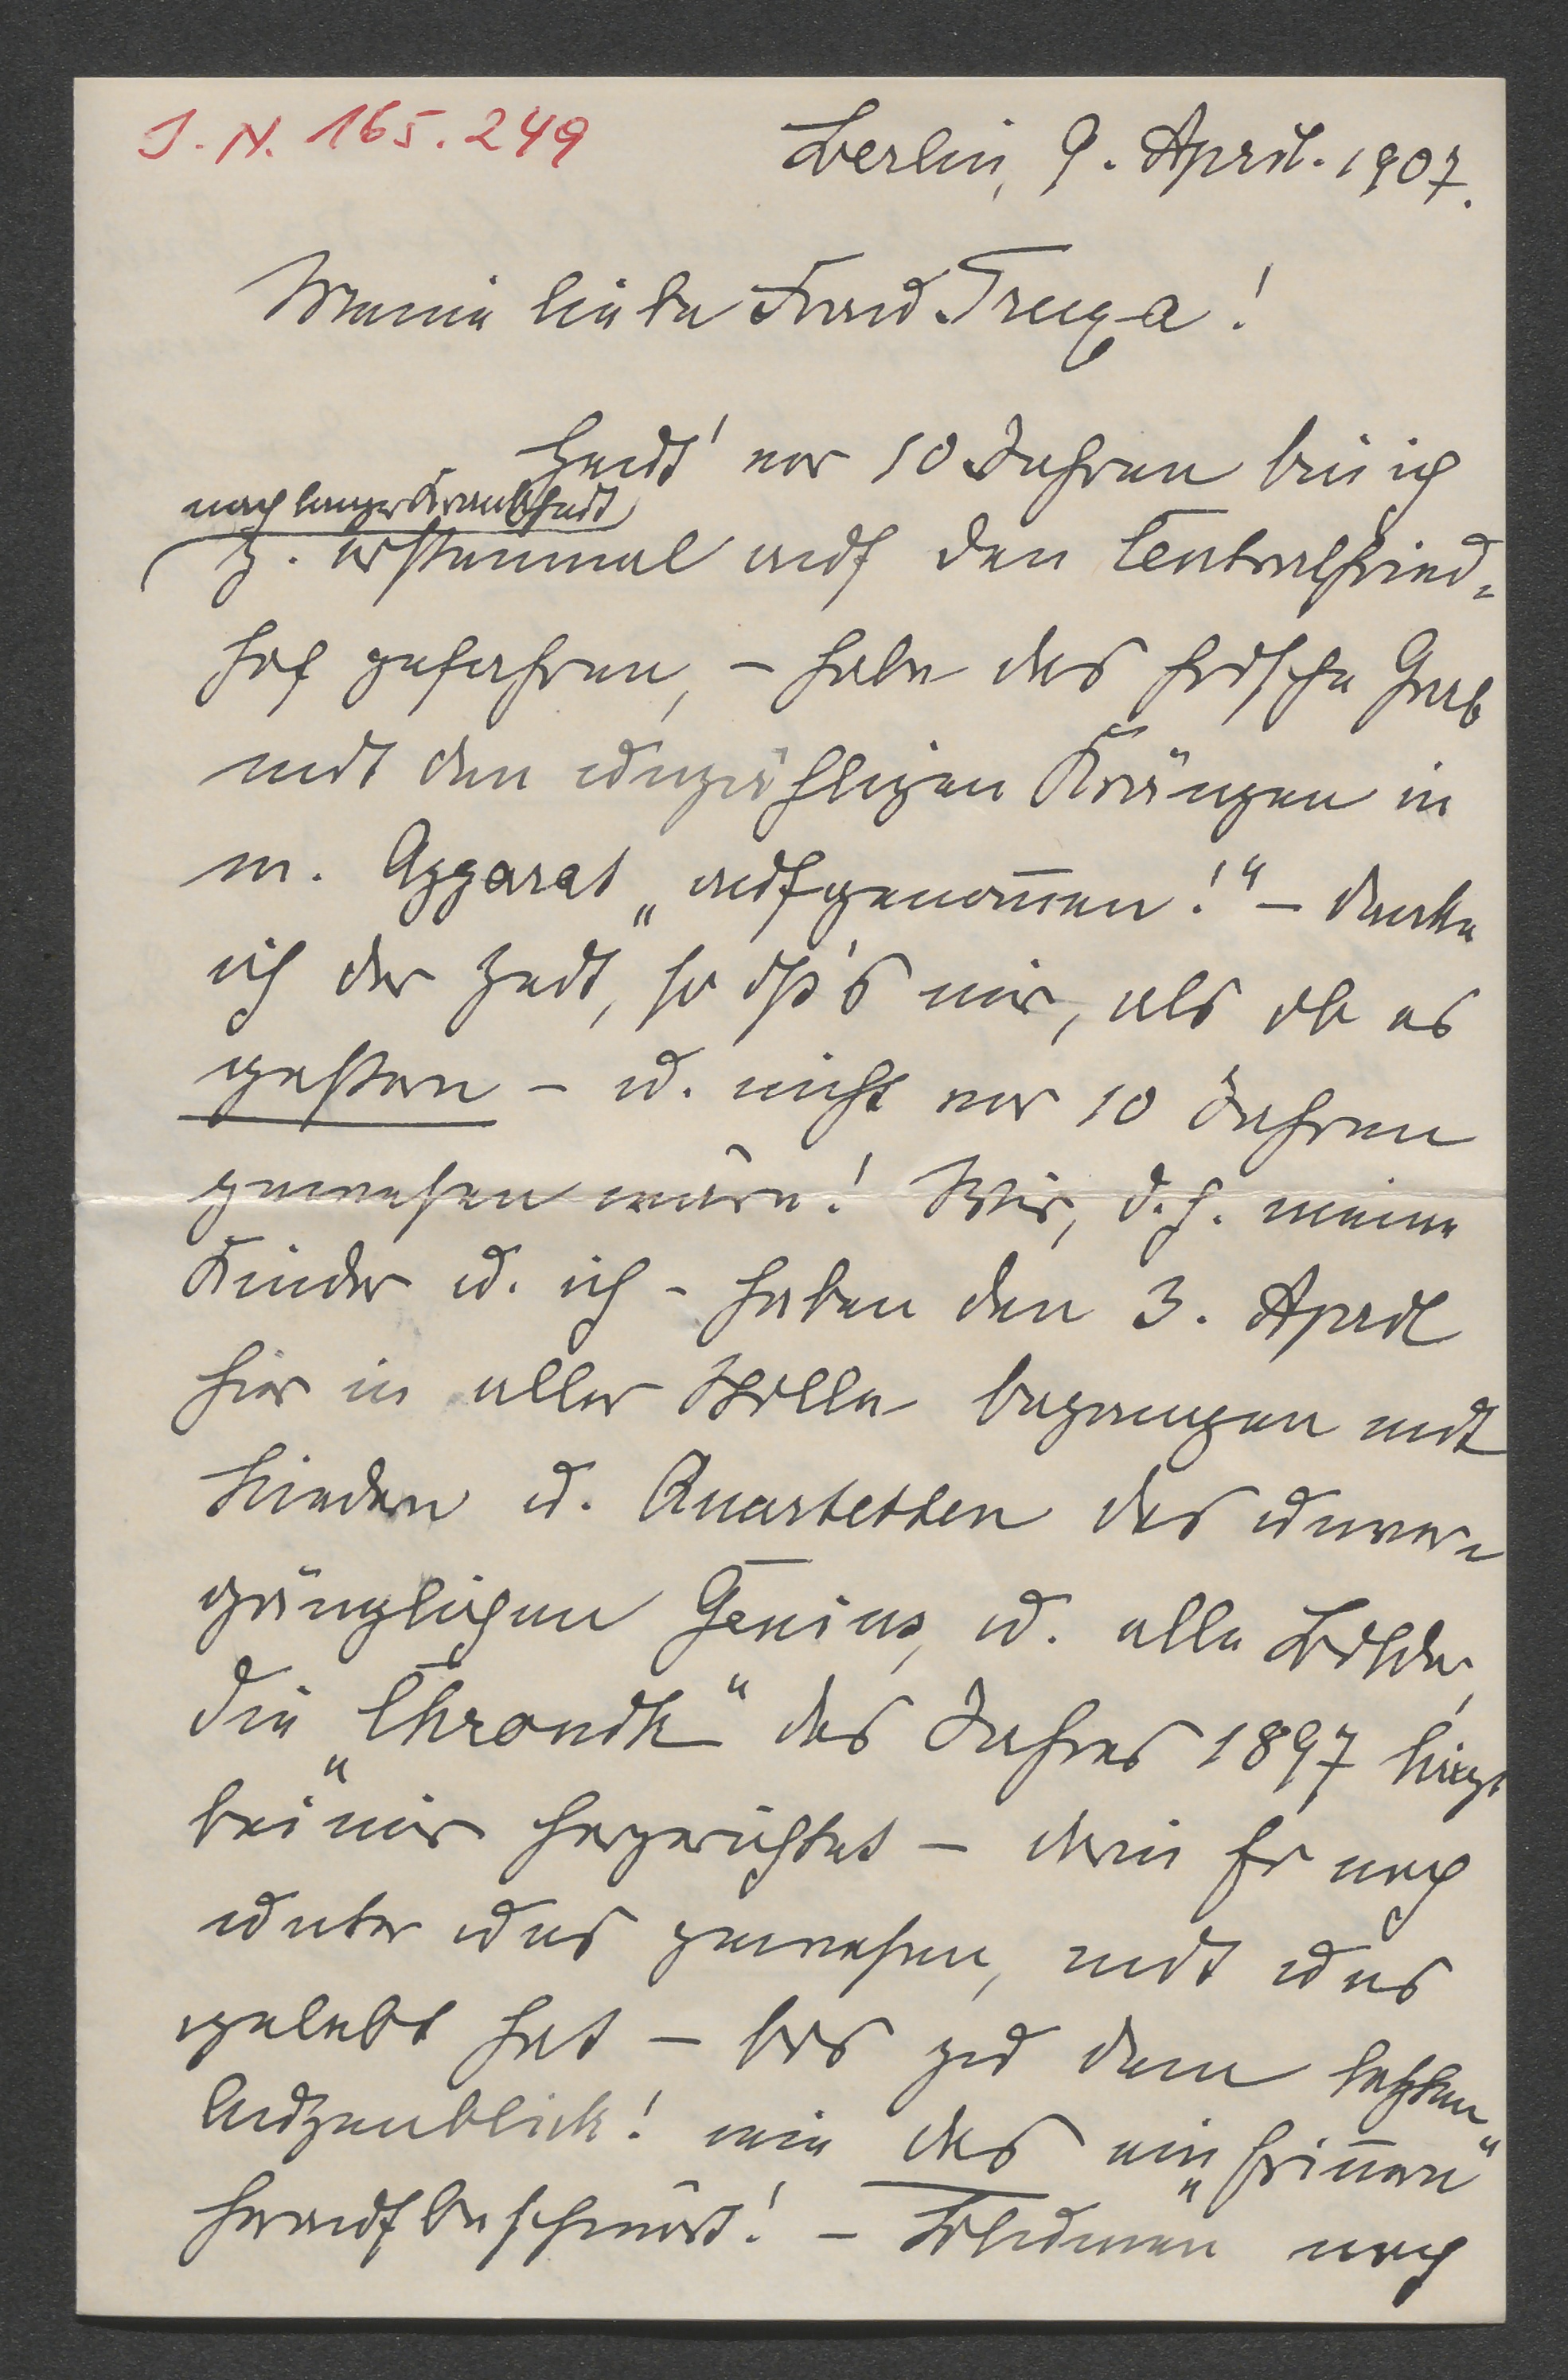 J. N. 165.249
Berlin, 9. April. 1907.
Meine liebe Frau Truxa!
Heut' vor 10 Jahren bin ich
nach langer Krankheit
z. erstenmal auf den Centralfried-
hof gefahren, – habe das frische Grab
mit den unzähligen Kränzen in
m. Apparat „aufgenom̄en!“ – denke
ich der Zeit, so ist's mir, als ob es
gestern – u. nicht vor 10 Jahren
gewesen wäre! Wir, d. h. meine
Kinder u. ich – haben den 3. April
hier in aller Stille begangen mit
Liedern u. Quartetten des unver-
gänglichen Genius, u. alle Bilder,
die „Chronik“ des Jahres 1897 liegt
bei mir hergerichtet – darin Er noch
unter uns gewesen, mit uns
gelebt hat – bis zu dem letzten
Augenblick! wie das ein „Erin̄ern“
heraufbeschwört! – Blumen nach